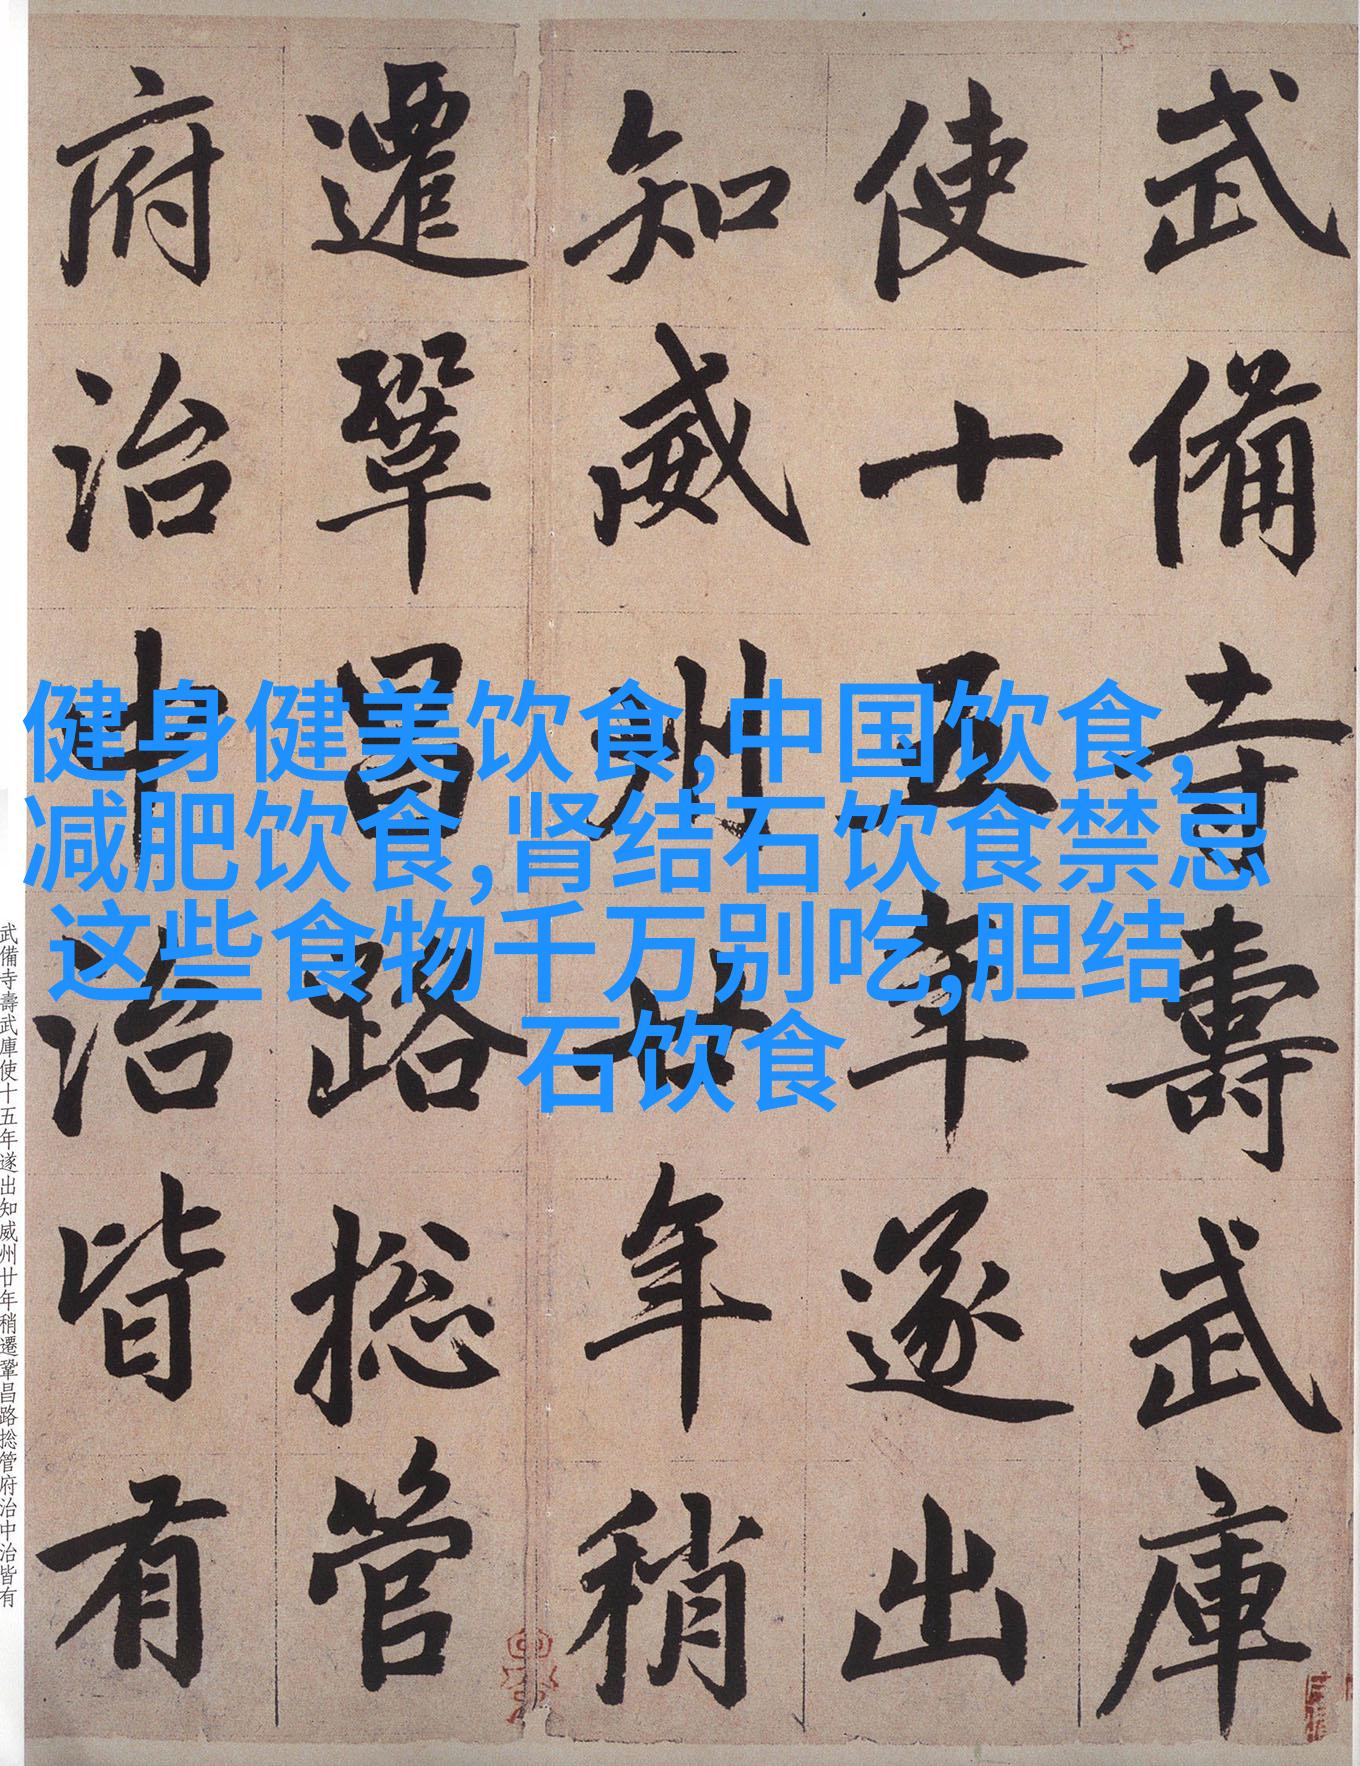 武備寺壽武庫
使十五年遂出
知威州廿年稍
遷鞏昌路揔管
府治中治皆有
健身健美饮食,中国饮食,
减肥饮食,肾结石饮食禁忌
这些食物千万别吃,胆结
石饮食
武備寺壽武庫使十五年遂出知威州廿年稍遷鞏昌路揔管府治中治皆有